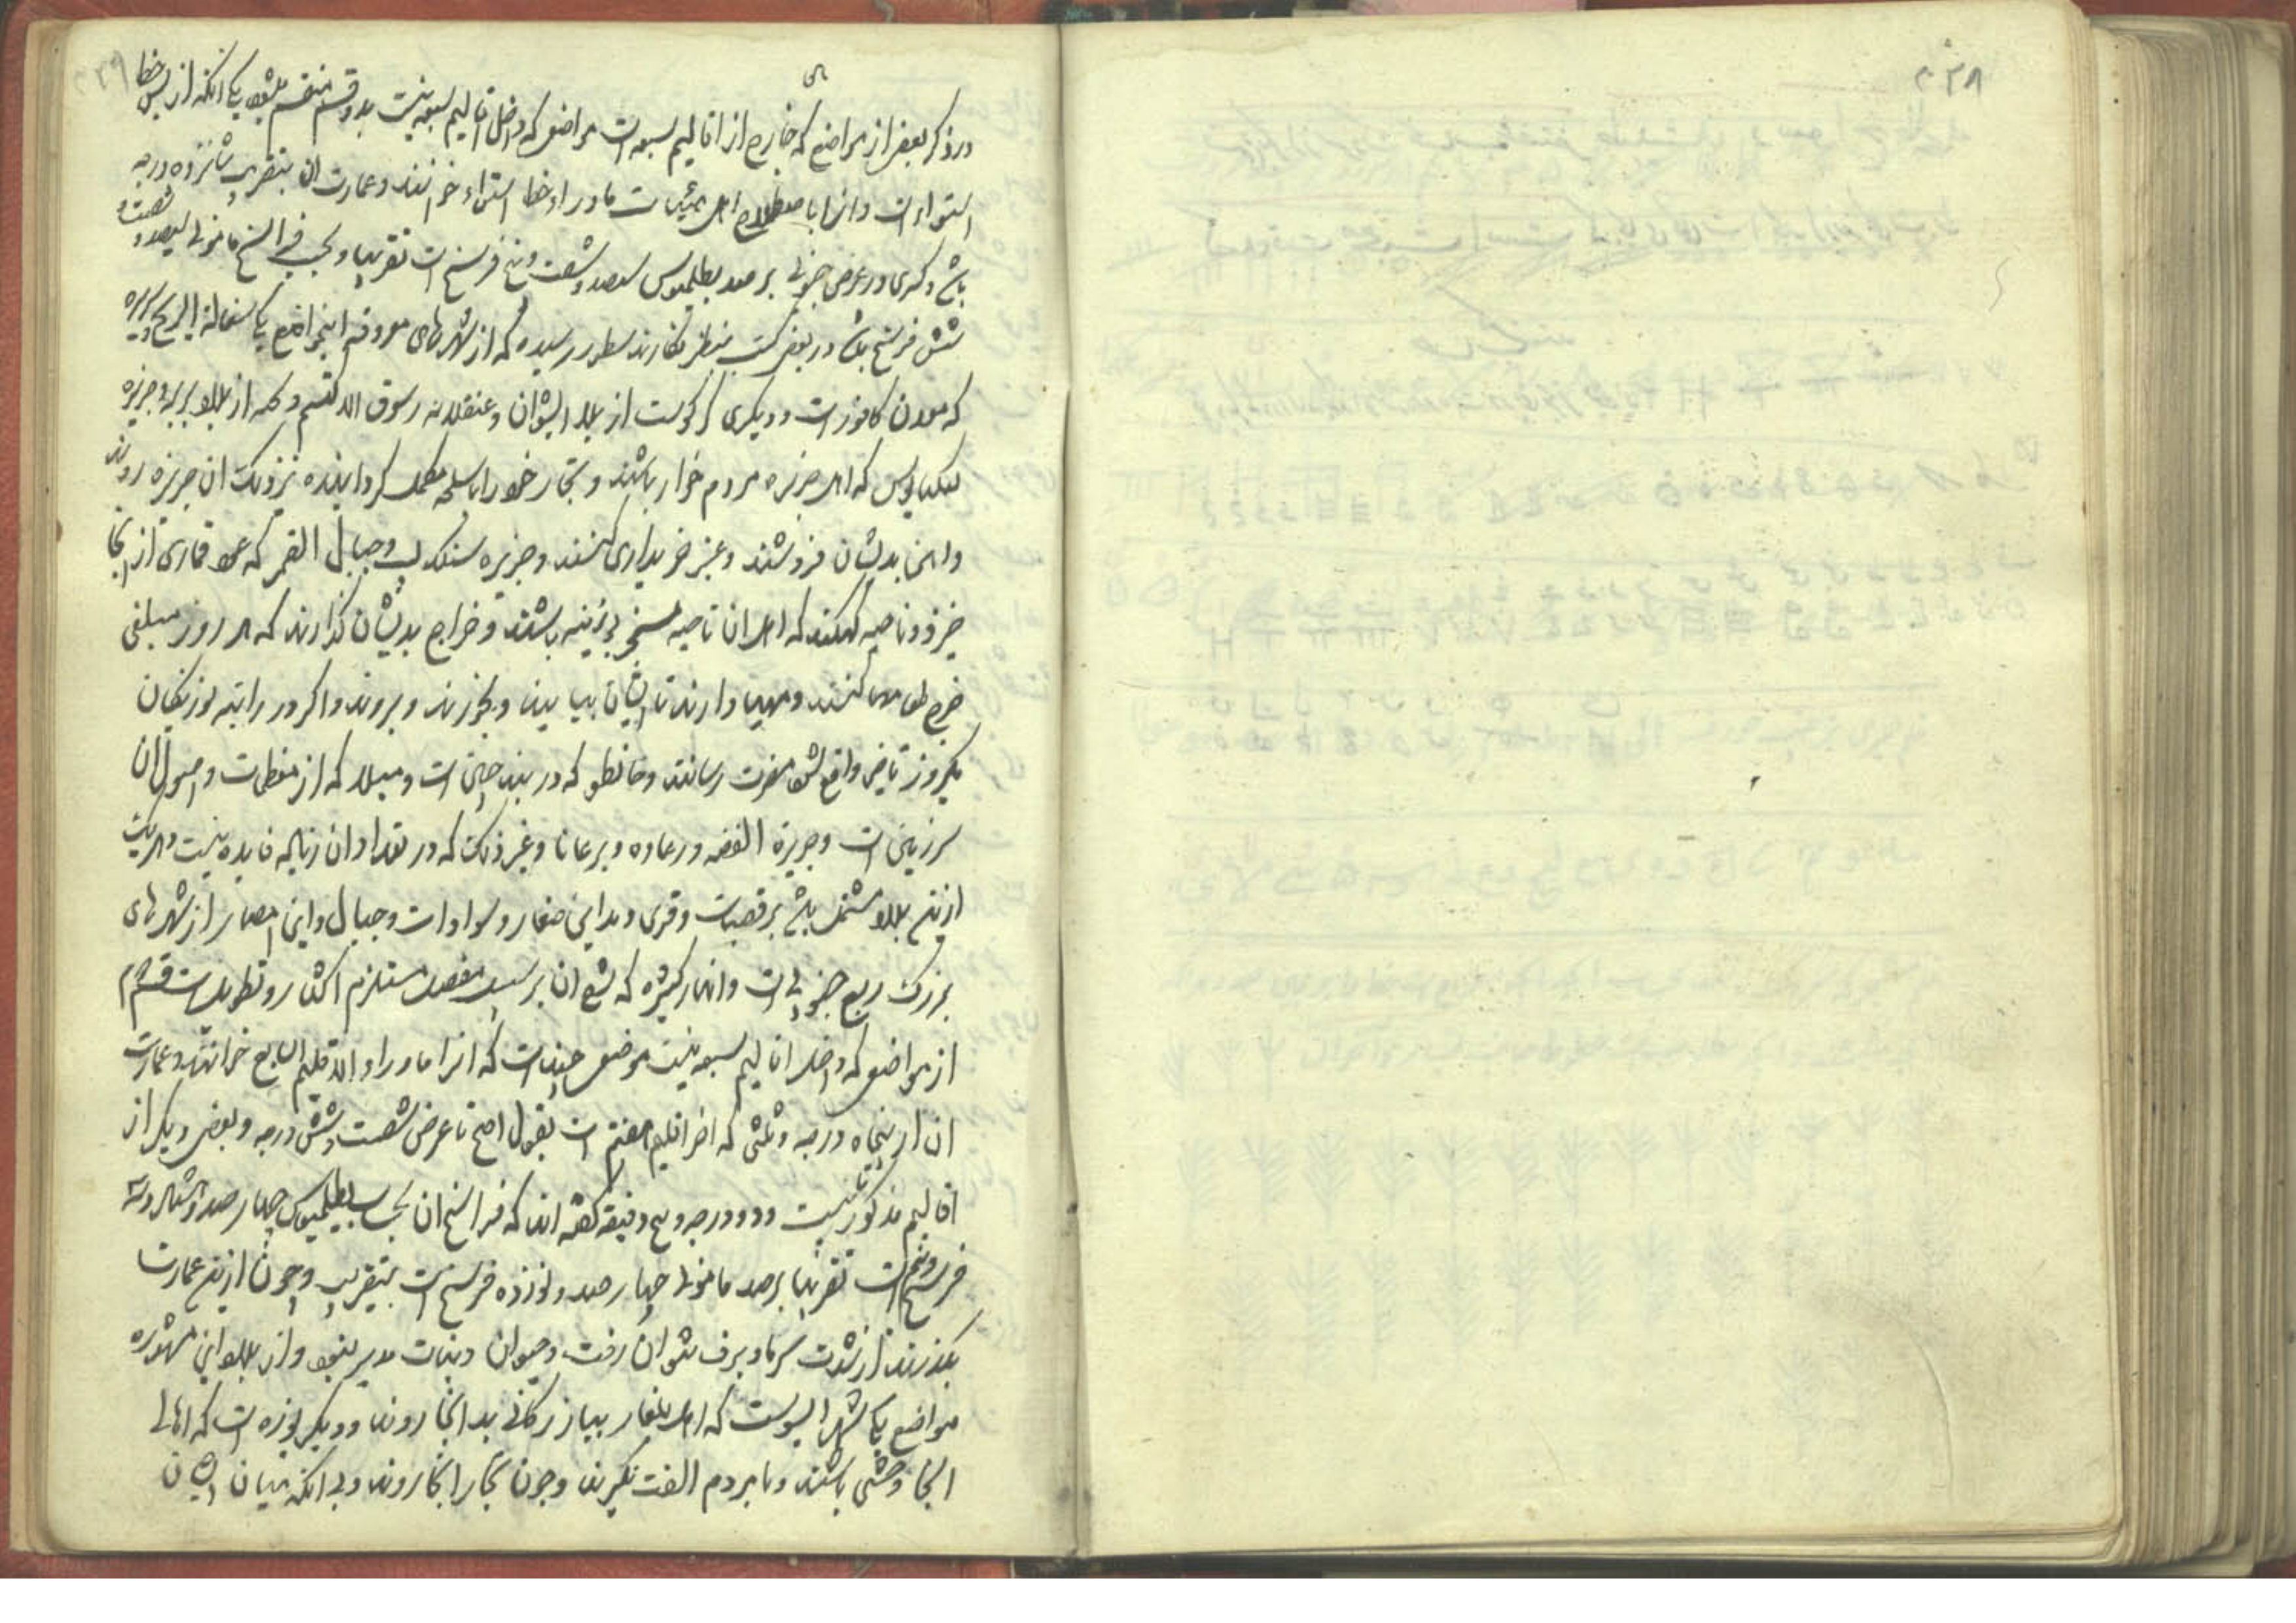 ۰۳۸
۰۳۹
در ذکر بعضی از مواضع که خارج از اقالیم سبعه است مواضعی که داخل اقالیم سبعه نیست بدو قسم منقسم میشود یکی انکه از پس خط
استواء است و انرا باصطلاح اهل هیئات ماوراء خط استواء خوانند و عمارت ان بتقریب شانزده درجه
باشد و کسری در عرض جنوبی برصد بطلمیوس سیصد و شصت و پنج فرسخ است تقریبا و بحسب فراسخ مامونی سیصد و شصت و
شش فرسخ باشد در بعضی کتب بنظر نکارنده سطور رسیده که از شهرهای معروفه اینمواضع یکی سفاله الریح و سریره
که معدن کافور است و دیکری کرکوست از بلاد السودان و دنقله و سوق الاقسم و کله از بلاد بربر و جزیره
لنکبالوس که اهل جزیره مردم خوار باشند و تجار خود را باسلحه مکمل کردانیده نزدیک ان جزیره روند
و اهن بدیشان فروشند و عنبر خریداری کنند و جزیره سنکدیب و جبال القمر که عود قماری از انجا
خیزد و ناحیه که اهل ان ناحیه مسخر بوزینه باشند و خراج بدیشان کذارند که هر روز مبلغی
خرج طعام کنند و مهیا دارند تا ایشان بیایند و بخورند و بروند و اکر در راتبه بوزینکان
یکروز تاخیر واقع شود مضرت رسانند و خانطو که در بند چین است و میلاد که از معظمات و اصول ان
سرزمین است و جزیرة الفضه و رعاده و برعانا و غیر ذلک که در تعداد ان زیاده فایده نیست و هر یک
ازین بلاد مشتمل باشد بر قصبات و قری و مداین صغار و سوادات و جبال و این امصار از شهرهای
بزرک ربع جنوبی است و انهار کثیره که شرح ان بر سبیل مفصل مستلزم اکثار و تطویل است قسم دوم
از مواضعی که داخل اقالیم سبعه نیست موضعی چند است که انرا ماوراء الاقلیم السابع خوانند و عمارت
ان از پنجاه درجه و ثلثی که اخر اقلیم هفتم است بقول اصح تا عرض شصت و شش درجه و بعضی دیکر از
اقالیم مذکور بیست و دو درجه و پنج دقیقه کفته اند که فراسخ ان بحساب بطلمیوس چهار صد و هشتاد و سه
فرسخ و نیم است تقریبا برصد مامونی چهار صد و نوزده فرسخ است بتقریب و چون ازین عمارت
بکذرند از شدت سرما و برف نتوان رفت و حیوان و نبات میسر نبود و از بلاد این مشهوره
مواضع یکی شهر ایسوست که اهل بلغار ببازرکانی بدانجا روند و دیکر یوره است که اهالی
انجا وحشی باشند و با مردم الفت نکیرند و چون تجار انجا روند و بی انکه میان ایشان